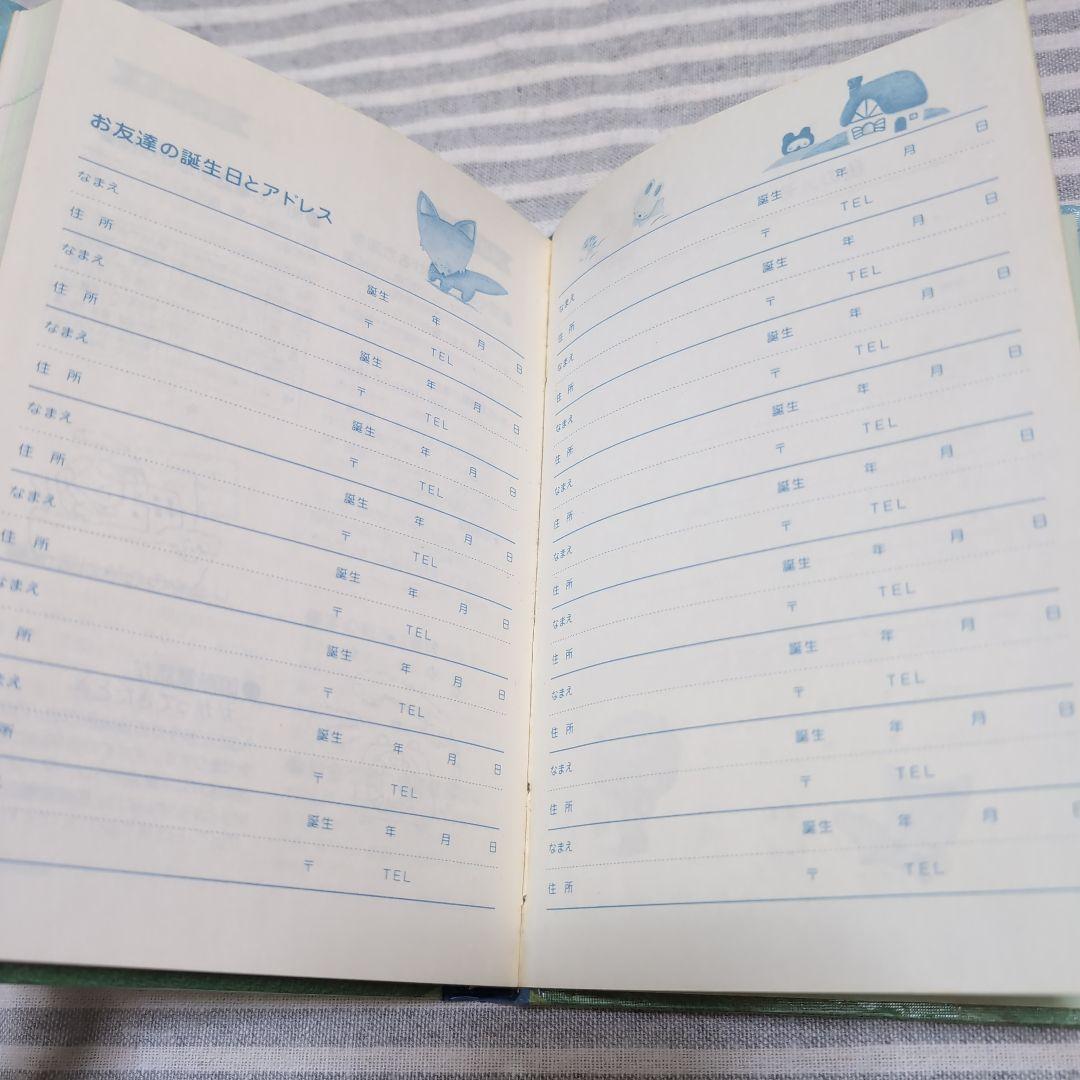 お友達の誕生日とアドレス
なまえ 誕生 年 月 日
住 所 〒 TEL
なまえ 誕生 年 月 日
住 所 〒 TEL
なまえ 誕生 年 月 日
住 所 〒 TEL
なまえ 誕生 年 月 日
住 所 〒 TEL
なまえ 誕生 年 月 日
住 所 〒 TEL
なまえ 誕生 年 月 日
所 〒 TEL
まえ 誕生 年 月 日
所 〒 TEL
誕生 年 月 日
〒 TEL
なまえ 誕生 年 月 日
住 所 〒 TEL
なまえ 誕生 年 月 日
住 所 〒 TEL
なまえ 誕生 年 月 日
住 所 〒 TEL
なまえ 誕生 年 月 日
住 所 〒 TEL
なまえ 誕生 年 月 日
住 所 〒 TEL
なまえ 誕生 年 月 日
住 所 〒 TEL
なまえ 誕生 年 月 日
住 所 〒 TEL
なまえ 誕生 年 月 日
住 所 〒 TEL
なまえ 誕生 年 月 日
住 所 〒 TEL